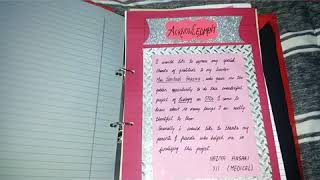 ACKNOWLEDGMENT
I would like to express my special
thanks of gratitude to my teacher
who gave me the
golden opportunity to do this wonderful
project of Biology on
know about so many things I am really
thankful to them.
Secondly i would like to thanks my
parents & friends who helped me in
finalizing this project
XII (MEDICAL)